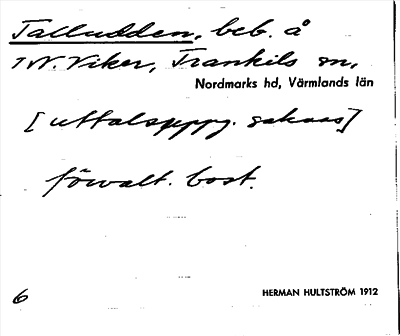 Talludden, beb. å
TN. Viker, Trankils sn,
Nordmarks hd, Värmlands län
[uttalsuppg. saknas]
förvalt. bost.
6
HERMAN HULTSTRÖM 1912